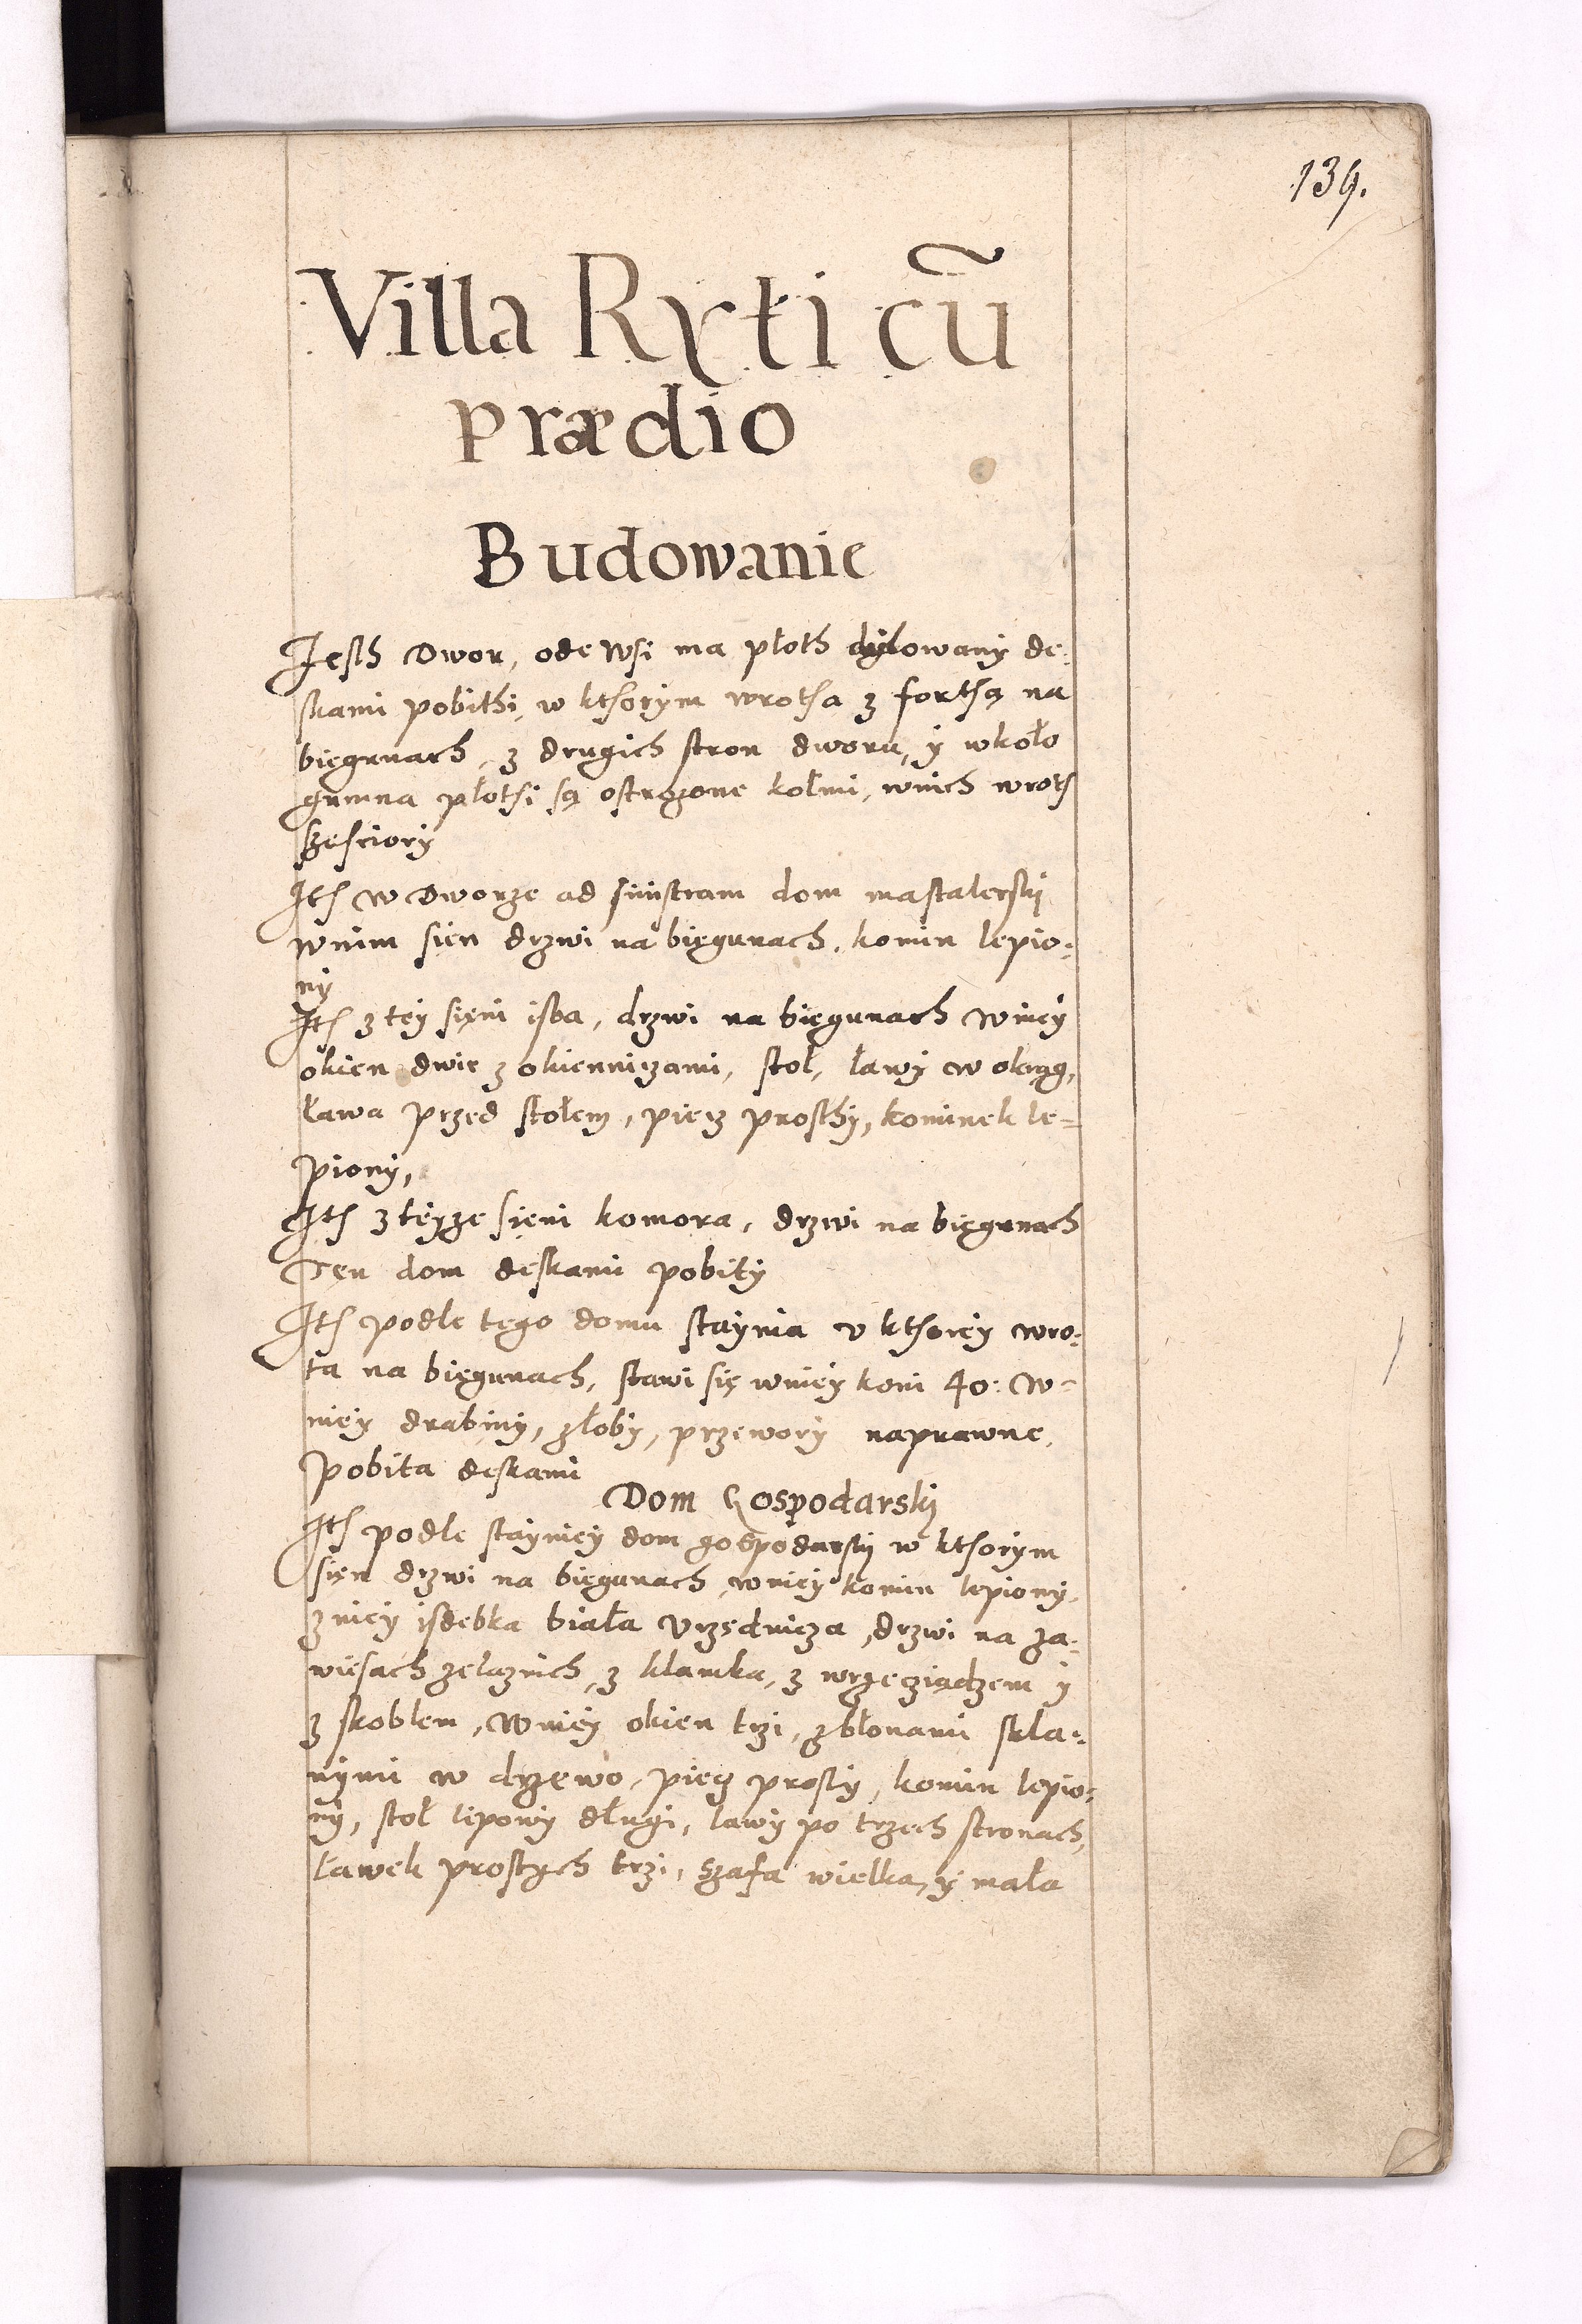 139.
Villa Ryti cũ
prædio
Budowanie
Jesth Dwor, ode wsi ma płoth dylowany de:
skami pobithi, w kthorym wrotha z forthą na
biegunach, z drugich stron dworu, y wkoło
gumna płothi są ostrożone kołmi, wnich wroth
sześciory
Ith w Dworze ad sinistram dom mastalerski
wnim sień drzwi na biegunach, komin lepio:
ny
Ith z tey sieni isba, drzwi na biegunach wniey
okien dwie z okiennizami, stoł, ławy w okrąg,
ława przed stołem, piecz prosthy, kominek le=
piony,
Ith z teyze sieni komora, drzwi na biegunach
Ten dom deskami pobity
Ith podle tego domu staynia v kthorey wro:
ta na biegunach, stawi się wniey koni 40: w=
niey drabiny, złoby, przewory naprawne,
pobita deskami
Dom Gospodarski
Ith podle stayniey dom gospodarski w kthorym
sien drzwi na biegunach, wniey komin lepiony,
zniey isdebka biała Vrzednicza, drzwi na za:
wiesach zelaznich, z klamka, z wrzecziądzem y
z skoblem, wniey okien trzi, z błonami skla:
nymi w drzewo, piecz prosty, komin lepio:
ny, stoł lipowy długi, lawy po trzech stronach,
ławek prostych trzi, szafa wielka, y mała